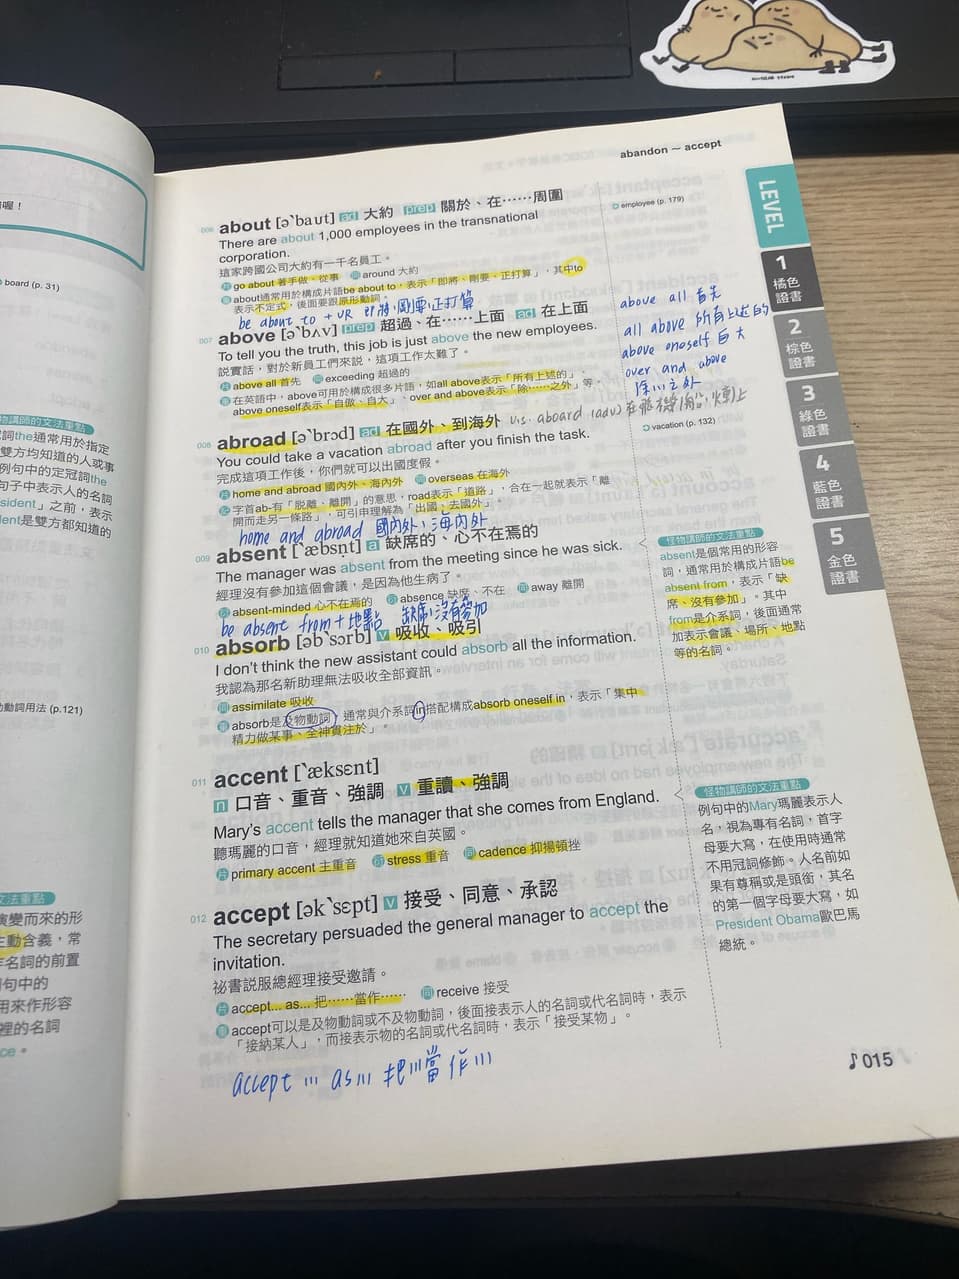 abandon ~ accept
LEVEL
1
橘色
證書
2
棕色
證書
3
綠色
證書
4
藍色
證書
5
金色
證書
006 about [ə`baʊt] ad 大約 prep 關於、在……周圍
There are about 1,000 employees in the transnational
corporation.
這家跨國公司大約有一千名員工。
片 go about 著手做、從事 同 around 大約
about通常用於構成片語be about to，表示「即將、剛要、正打算」，其中to
表示不定式，後面要跟原形動詞。
be about to + VR 即將,剛要,正打算
employee (p. 179)
007 above [ə`bʌv] prep 超過、在……上面 ad 在上面
To tell you the truth, this job is just above the new employees.
說實話，對於新員工們來說，這項工作太難了。
片 above all 首先 同 exceeding 超過的
在英語中，above可用於構成很多片語，如all above表示「所有上述的」、
above oneself表示「自傲、自大」、over and above表示「除……之外」等。
above all 首先
all above 所有上述的
above oneself 自大
over and above
除以之外
008 abroad [ə`brɔd] ad 在國外、到海外
v.s. aboard (adv) 在飛機(船,火車)上
You could take a vacation abroad after you finish the task.
完成這項工作後，你們就可以出國度假。
片 home and abroad 國內外、海內外 同 overseas 在海外
記 字首ab-有「脫離、離開」的意思，road表示「道路」，合在一起就表示「離
開而走另一條路」，可引申理解為「出國、去國外」。
home and abroad 國內外,海內外
vacation (p. 132)
009 absent [`æbsṇt] a 缺席的、心不在焉的
The manager was absent from the meeting since he was sick.
經理沒有參加這個會議，是因為他生病了。
absent-minded 心不在焉的 absence 缺席、不在 同 away 離開
be absent from + 地點 缺席,沒有參加
怪物講師的文法重點
absent是個常用的形容
詞，通常用於構成片語be
absent from，表示「缺
席、沒有參加」。其中
from是介系詞，後面通常
加表示會議、場所、地點
等的名詞。
010 absorb [əb`sɔrb] v 吸收、吸引
I don't think the new assistant could absorb all the information.
我認為那名新助理無法吸收全部資訊。
同 assimilate 吸收
absorb是及物動詞，通常與介系詞in搭配構成absorb oneself in，表示「集中
精力做某事、全神貫注於」。
011 accent [`æksɛnt]
n 口音、重音、強調 v 重讀、強調
Mary's accent tells the manager that she comes from England.
聽瑪麗的口音，經理就知道她來自英國。
片 primary accent 主重音 stress 重音 同 cadence 抑揚頓挫
怪物講師的文法重點
例句中的Mary瑪麗表示人
名，視為專有名詞，首字
母要大寫，在使用時通常
不用冠詞修飾。人名前如
果有尊稱或是頭銜，其名
的第一個字母要大寫，如
President Obama歐巴馬
總統。
012 accept [ək`sɛpt] v 接受、同意、承認
The secretary persuaded the general manager to accept the
invitation.
祕書說服總經理接受邀請。
片 accept... as... 把……當作…… 同 receive 接受
accept可以是及物動詞或不及物動詞，後面接表示人的名詞或代名詞時，表示
「接納某人」，而接表示物的名詞或代名詞時，表示「接受某物」。
accept ... as... 把...當作...
015
喔！
board (p. 31)
物講師的文法重點
詞the通常用於指定
雙方均知道的人或事
例句中的定冠詞the
句子中表示人的名詞
sident」之前，表示
dent是雙方都知道的
動詞用法 (p.121)
文法重點
演變而來的形
主動含義，常
作名詞的前置
例句中的
用來作形容
裡的名詞
ce。